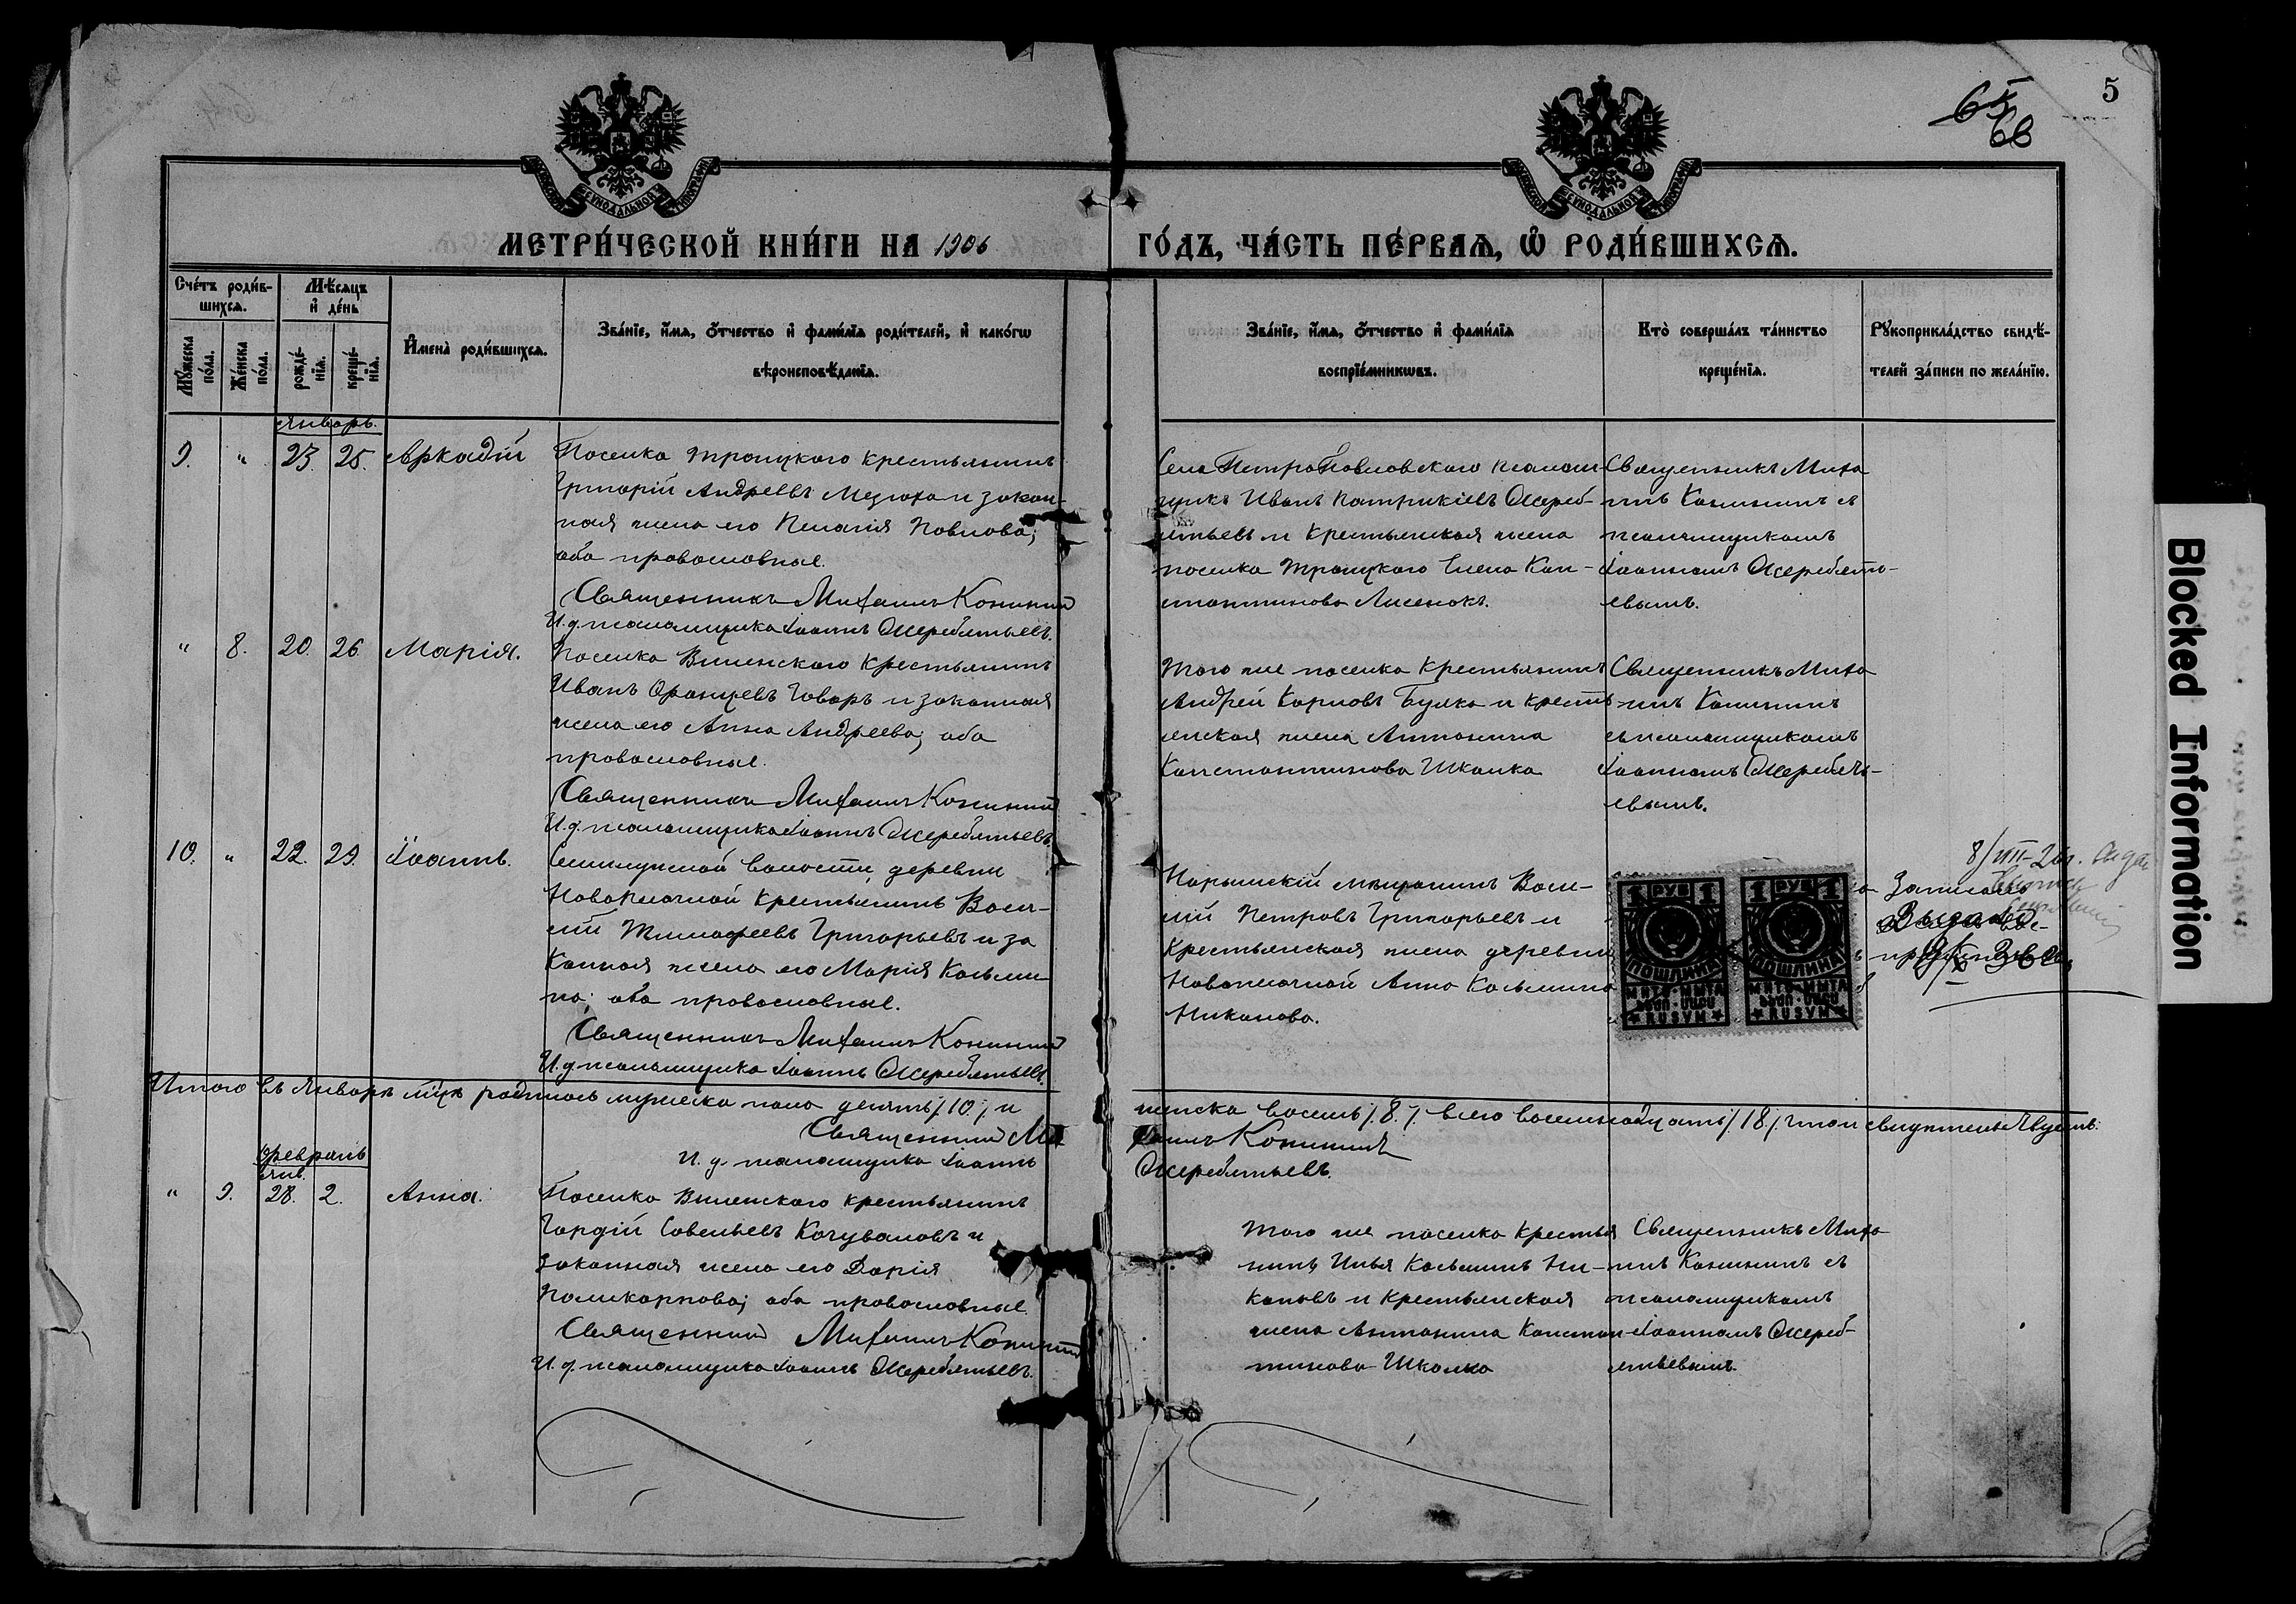 5
65
66
МОСКОВСКОЙ СѴНОДАЛЬНОЙ ТИПОГРАФІИ
МОСКОВСКОЙ СѴНОДАЛЬНОЙ ТИПОГРАФІИ
МЕТРИ́ЧЕСКОЙ КНИ́ГИ НА 1906
ГО́ДЪ, ЧА́СТЬ ПЕ́РВАѦ, Ѡ РОДИ́ВШИХСѦ.
Сче́тъ роди́в-
шихсѧ.
Мꙋ́жеска по́ла.
Же́нска по́ла.
Мѣ́сѧцъ
и де́нь
рожде́-
нїѧ.
креще́-
нїѧ.
Имена̀ роди́вшихсѧ.
Зва́нїе, и́мѧ, ѻ́тчество и фами́лїѧ роди́телей, и како́гѡ
вѣроисповѣ́данїѧ.
Зва́нїе, и́мѧ, ѻ́тчество и фами́лїѧ
воспрїе́мникѡвъ.
Кто̀ соверша́лъ та́инство
креще́нїѧ.
Рꙋкоприкла́дство свидѣ́-
телей за́писи по жела́нїю.
Январь.
9. " 23. 25. Аркадій
Поселка Троицкаго крестьянинъ
Григорій Андреевъ Мезюха и закон-
ная жена его Пелагія Павлова;
оба православные.
Священникъ Михаилъ Конинин
И. д. псаломщика Іоаннъ Жеребятьевъ.
Села Петропавловскаго псалом-
щикъ Иванъ Патрикіевъ Жереб-
ятьевъ и крестьянская жена
поселка Троицкаго Елена Кон-
стантинова Лисенокъ.
Священникъ Миха
илъ Конининъ съ
псаломщикомъ
Іоанномъ Жеребять-
евымъ.
" 8. 20. 26. Марія.
Поселка Виленскаго крестьянинъ
Иванъ Францевъ Говоръ и законная
жена его Анна Андреева; оба
православные.
Священникъ Михаилъ Конинин
И. д. псаломщика Іоаннъ Жеребятьевъ.
Того же поселка крестьянинъ
Андрей Карповъ Булка и крестья
нская жена Антонина
Константинова Школка
Священникъ Миха
илъ Конининъ
съ псаломщикомъ
Іоанномъ Жеребять-
евымъ.
10. " 22. 29. Іоаннъ.
волости, деревни
Новоключной крестьянинъ Васи-
лій Тимофеевъ Григорьевъ и за
конная жена его Марія Козьми
на; оба православные.
Священникъ Михаилъ Конинин
И. д. псаломщика Іоаннъ Жеребятьевъ.
мѣщанинъ Васи-
лій Петровъ Григорьевъ и
крестьянская жена деревни
Новоключной Анна Козьмина
Никонова.
1 РУБ 1
ПОШЛИНА
МИТО·МЫТА
RUSVM
1 РУБ 1
ПОШЛИНА
МИТО·МЫТА
RUSVM
8/VIII-26г.
Итого въ Январѣ мцѣ родилось мужеска пола десять /10./ и
женска восемь /8./ всего восемнадцать /18./
Священник Ми
хаилъ Конинин
И. д. псаломщика Іоаннъ
Жеребятьевъ.
Февраль
Янв.
" 9. 28. 2. Анна.
Поселка Виленскаго крестьянинъ
Гордій Савельевъ Качуваловъ и
законная жена его Дарія
Поликарпова; оба православные.
Священник Михаилъ Конинин
И. д. псаломщика Іоаннъ Жеребятьевъ.
Того же поселка крестья
нинъ Илья Козьминъ Ни-
коновъ и крестьянская
жена Антонина Констан-
тинова Школка
Священникъ Миха
илъ Конининъ съ
псаломщикомъ
Іоанномъ Жереб-
ятьевымъ.
Blocked Information